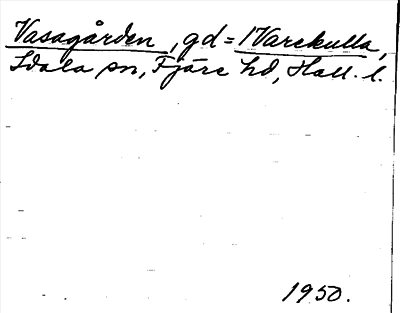 Vasagården, gd = 1 Varekulla,
Idala sn, Fjäre hd, Hall. l.
1950.